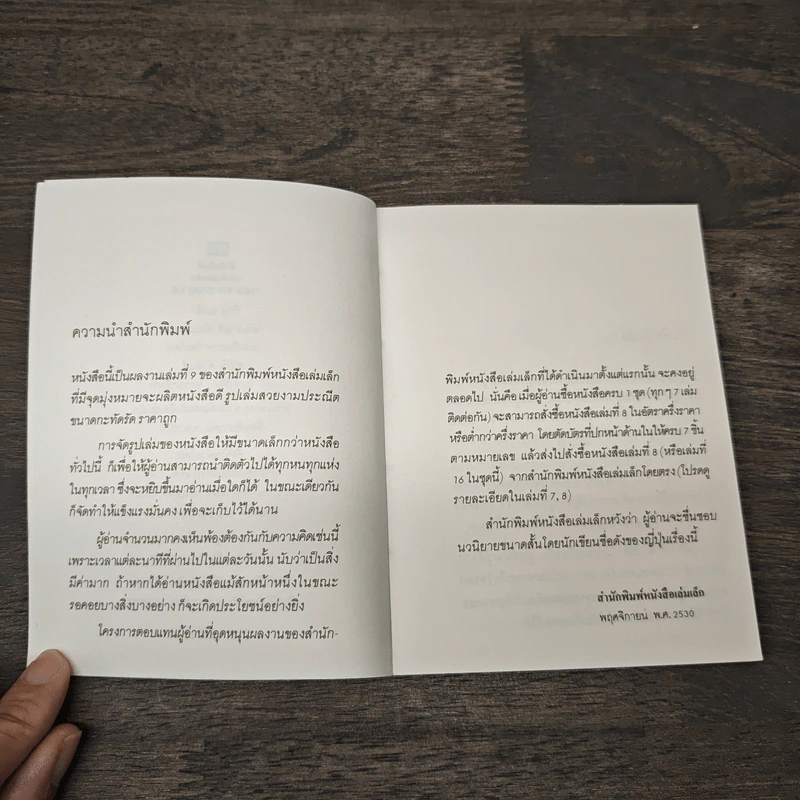 ความนำสำนักพิมพ์
หนังสือนี้เป็นผลงานเล่มที่ 9 ของสำนักพิมพ์หนังสือเล่มเล็ก
ที่มีจุดมุ่งหมายจะผลิตหนังสือดี รูปเล่มสวยงามประณีต
ขนาดกะทัดรัด ราคาถูก
การจัดรูปเล่มของหนังสือให้มีขนาดเล็กกว่าหนังสือ
ทั่วไปนี้ ก็เพื่อให้ผู้อ่านสามารถนำติดตัวไปได้ทุกหนทุกแห่ง
ในทุกเวลา ซึ่งจะหยิบขึ้นมาอ่านเมื่อใดก็ได้ ในขณะเดียวกัน
ก็จัดทำให้แข็งแรงมั่นคง เพื่อจะเก็บไว้ได้นาน
ผู้อ่านจำนวนมากคงเห็นพ้องต้องกันกับความคิดเช่นนี้
เพราะเวลาแต่ละนาทีที่ผ่านไปในแต่ละวันนั้น นับว่าเป็นสิ่ง
มีค่ามาก ถ้าหากได้อ่านหนังสือแม้สักหน้าหนึ่งในขณะ
รอคอยบางสิ่งบางอย่าง ก็จะเกิดประโยชน์อย่างยิ่ง
โครงการตอบแทนผู้อ่านที่อุดหนุนผลงานของสำนัก-
พิมพ์หนังสือเล่มเล็กที่ได้ดำเนินมาตั้งแต่แรกนั้น จะคงอยู่
ตลอดไป นั่นคือ เมื่อผู้อ่านซื้อหนังสือครบ 1 ชุด (ทุก ๆ 7 เล่ม
ติดต่อกัน) จะสามารถสั่งซื้อหนังสือเล่มที่ 8 ในอัตราครึ่งราคา
หรือต่ำกว่าครึ่งราคา โดยตัดบัตรที่ปกหน้าด้านในให้ครบ 7 ชิ้น
ตามหมายเลข แล้วส่งไปสั่งซื้อหนังสือเล่มที่ 8 (หรือเล่มที่
16 ในชุดนี้) จากสำนักพิมพ์หนังสือเล่มเล็กโดยตรง (โปรดดู
รายละเอียดในเล่มที่ 7, 8)
สำนักพิมพ์หนังสือเล่มเล็กหวังว่า ผู้อ่านจะชื่นชอบ
นวนิยายขนาดสั้นโดยนักเขียนชื่อดังของญี่ปุ่นเรื่องนี้
สำนักพิมพ์หนังสือเล่มเล็ก
พฤศจิกายน พ.ศ. 2530